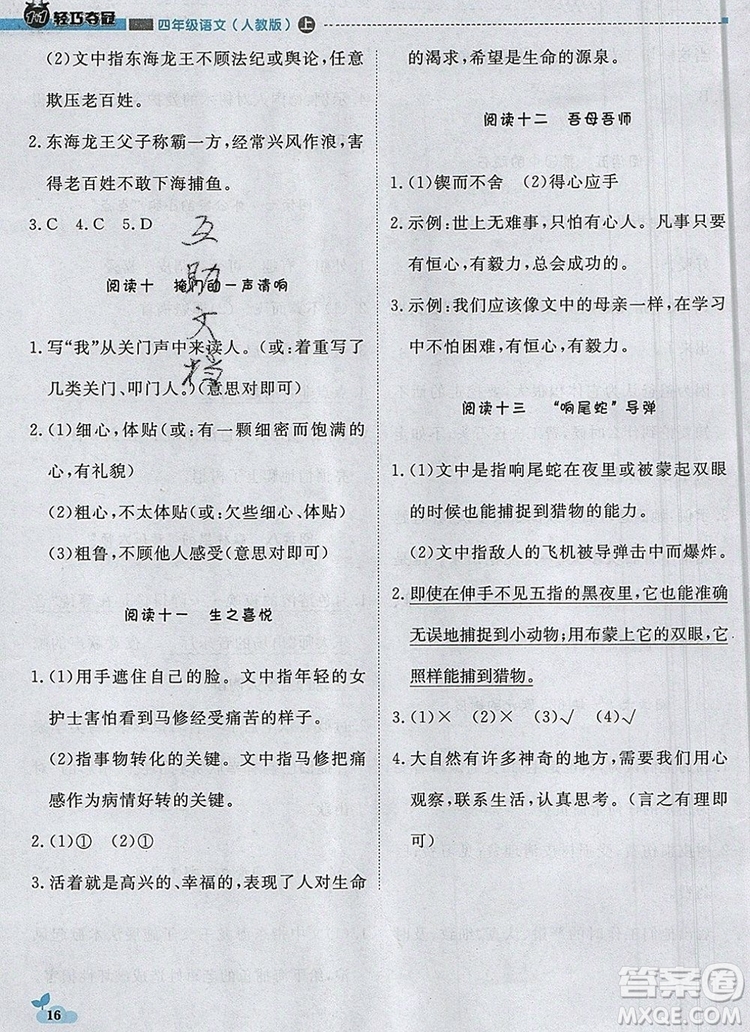 1+1 轻巧夺冠 四年级语文（人教版）上
(2)文中指东海龙王不顾法纪或舆论，任意
欺压老百姓。
2.东海龙王父子称霸一方，经常兴风作浪，害
得老百姓不敢下海捕鱼。
3.C 4.C 5.D
阅读十 掩门的一声清响
1.写“我”从关门声中来读人。（或：着重写了
几类关门、叩门人。）（意思对即可）
2.(1)细心，体贴（或：有一颗细密而饱满的
心，有礼貌）
(2)粗心，不太体贴（或：欠些细心、体贴）
(3)粗鲁，不顾他人感受（意思对即可）
阅读十一 生之喜悦
1.(1)用手遮住自己的脸。文中指年轻的女
护士害怕看到马修经受痛苦的样子。
(2)指事物转化的关键。文中指马修把痛
感作为病情好转的关键。
2.(1)① (2)①
3.活着就是高兴的、幸福的，表现了人对生命
的渴求，希望是生命的源泉。
阅读十二 吾母吾师
1.(1)锲而不舍 (2)得心应手
2.示例：世上无难事，只怕有心人。凡事只要
有恒心，有毅力，总会成功的。
3.示例：我们应该像文中的母亲一样，在学习
中不怕困难，有恒心，有毅力。
阅读十三 “响尾蛇”导弹
1.(1)文中是指响尾蛇在夜里或被蒙起双眼
的时候也能捕捉到猎物的能力。
(2)文中指敌人的飞机被导弹击中而爆炸。
2.即使在伸手不见五指的黑夜里，它也能准确
无误地捕捉到小动物；用布蒙上它的双眼，它
照样能捕到猎物。
3.(1)× (2)× (3)√ (4)√
4.大自然有许多神奇的地方，需要我们用心
观察，联系生活，认真思考。（言之有理即
可）
互助文档
16
答案圈
MXQE.COM